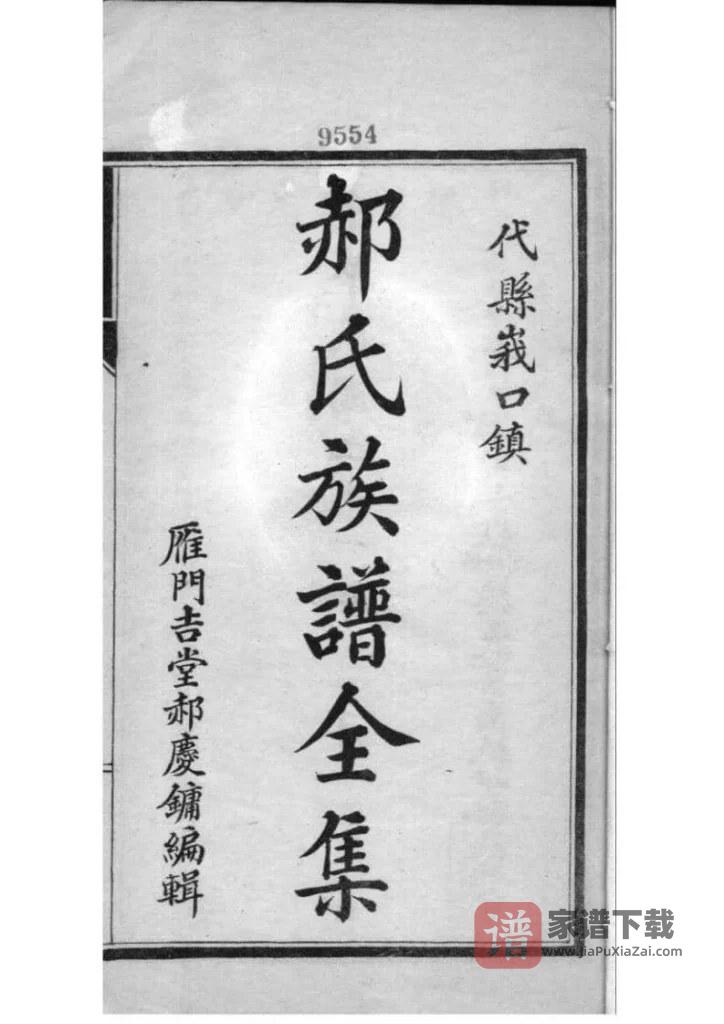 9554
代縣峩口鎮
郝氏族譜全集
雁門吉堂郝慶鏞編輯
谱 家谱下载
www.jiaPuXiaZai.com